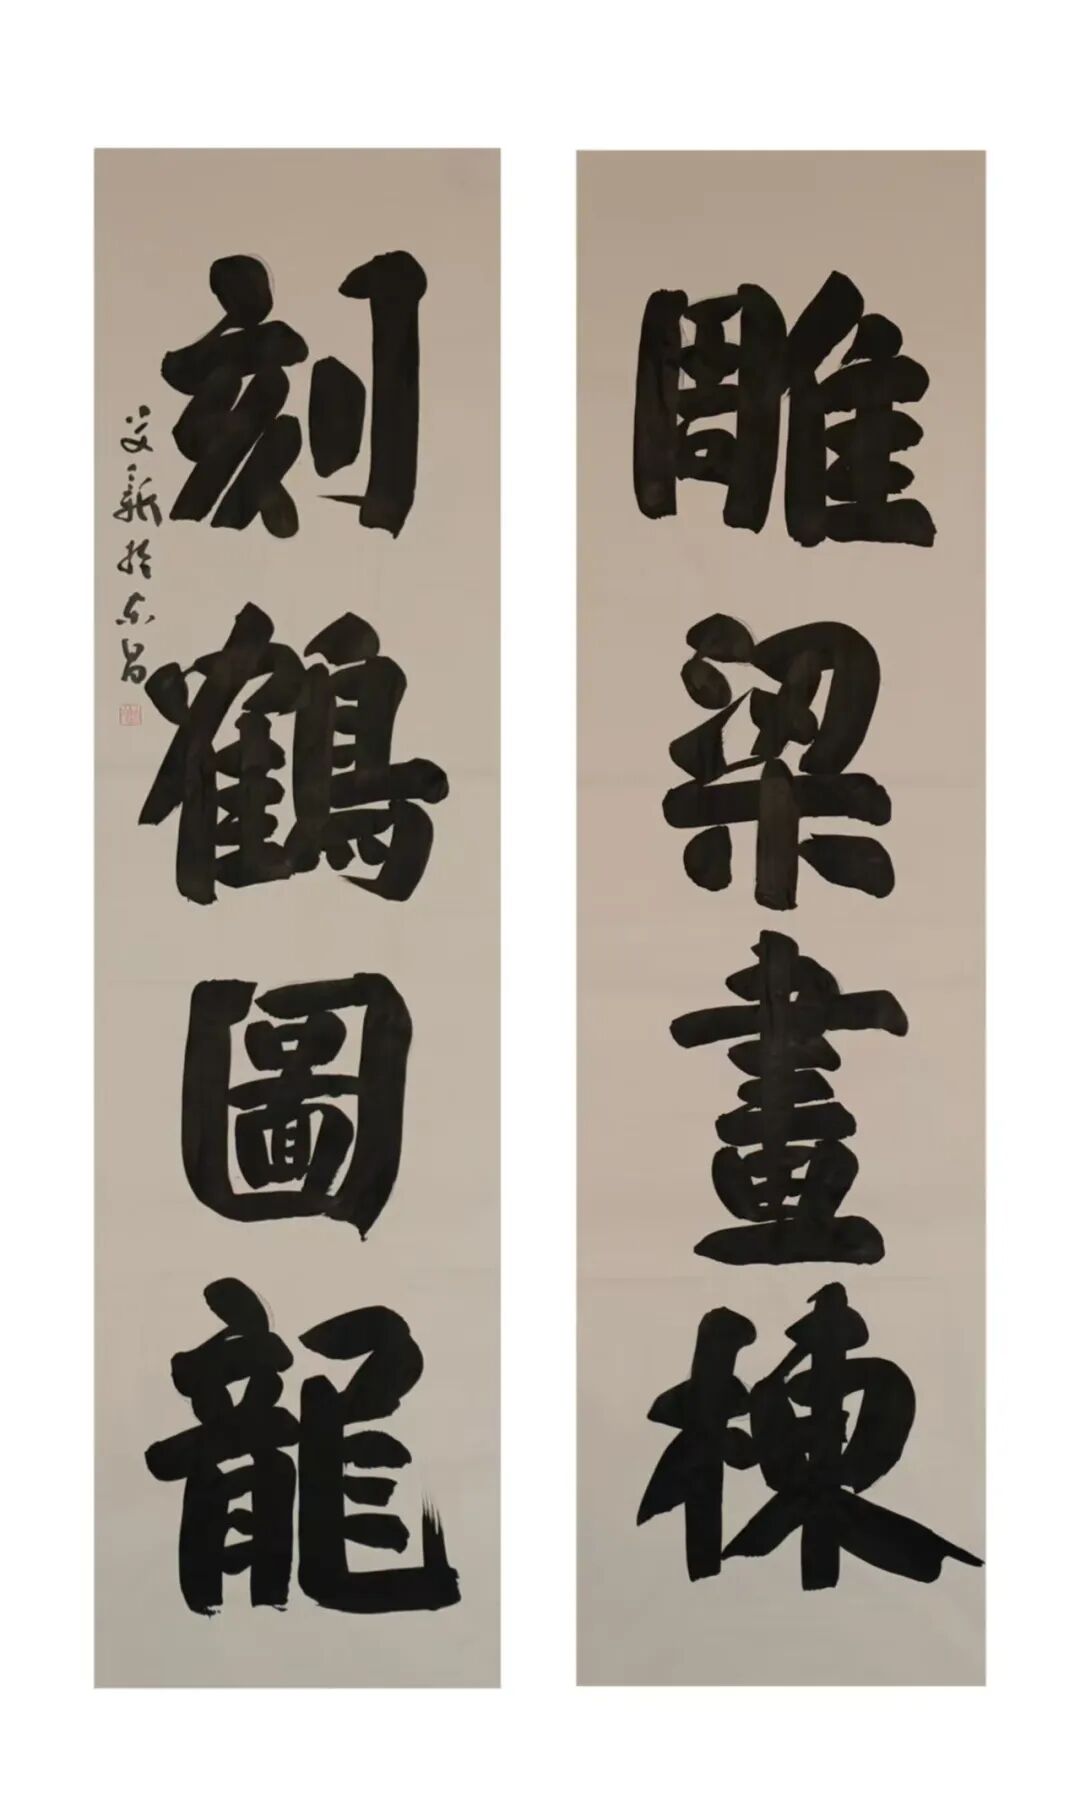 雕梁畫棟
刻鶴圖龍
艾新於东昌